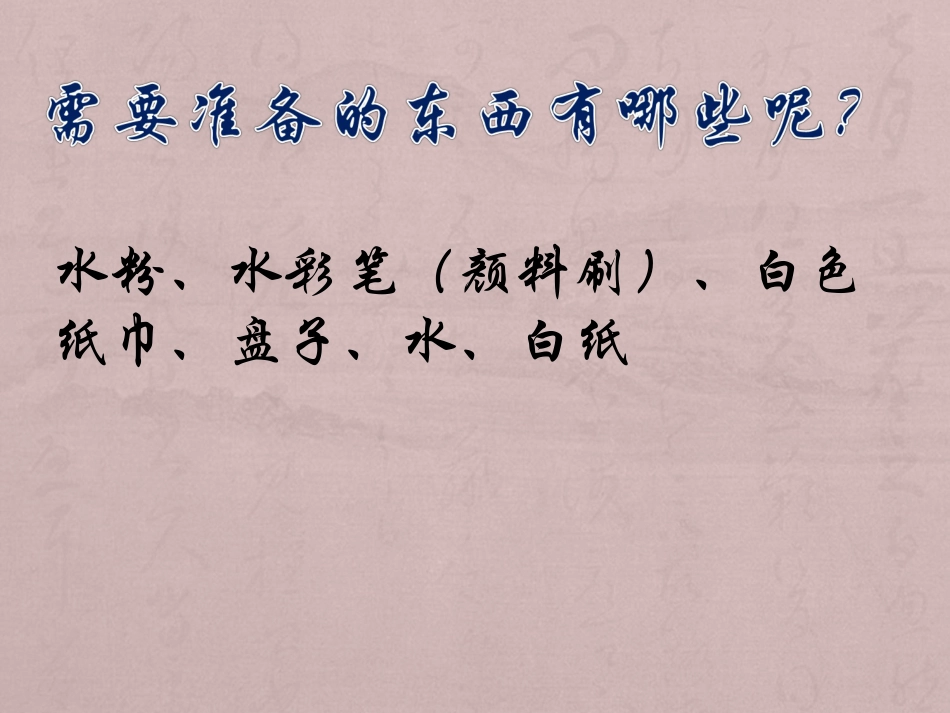 需要准备的东西有哪些呢？
水粉、水彩笔（颜料刷）、白色
纸巾、盘子、水、白纸